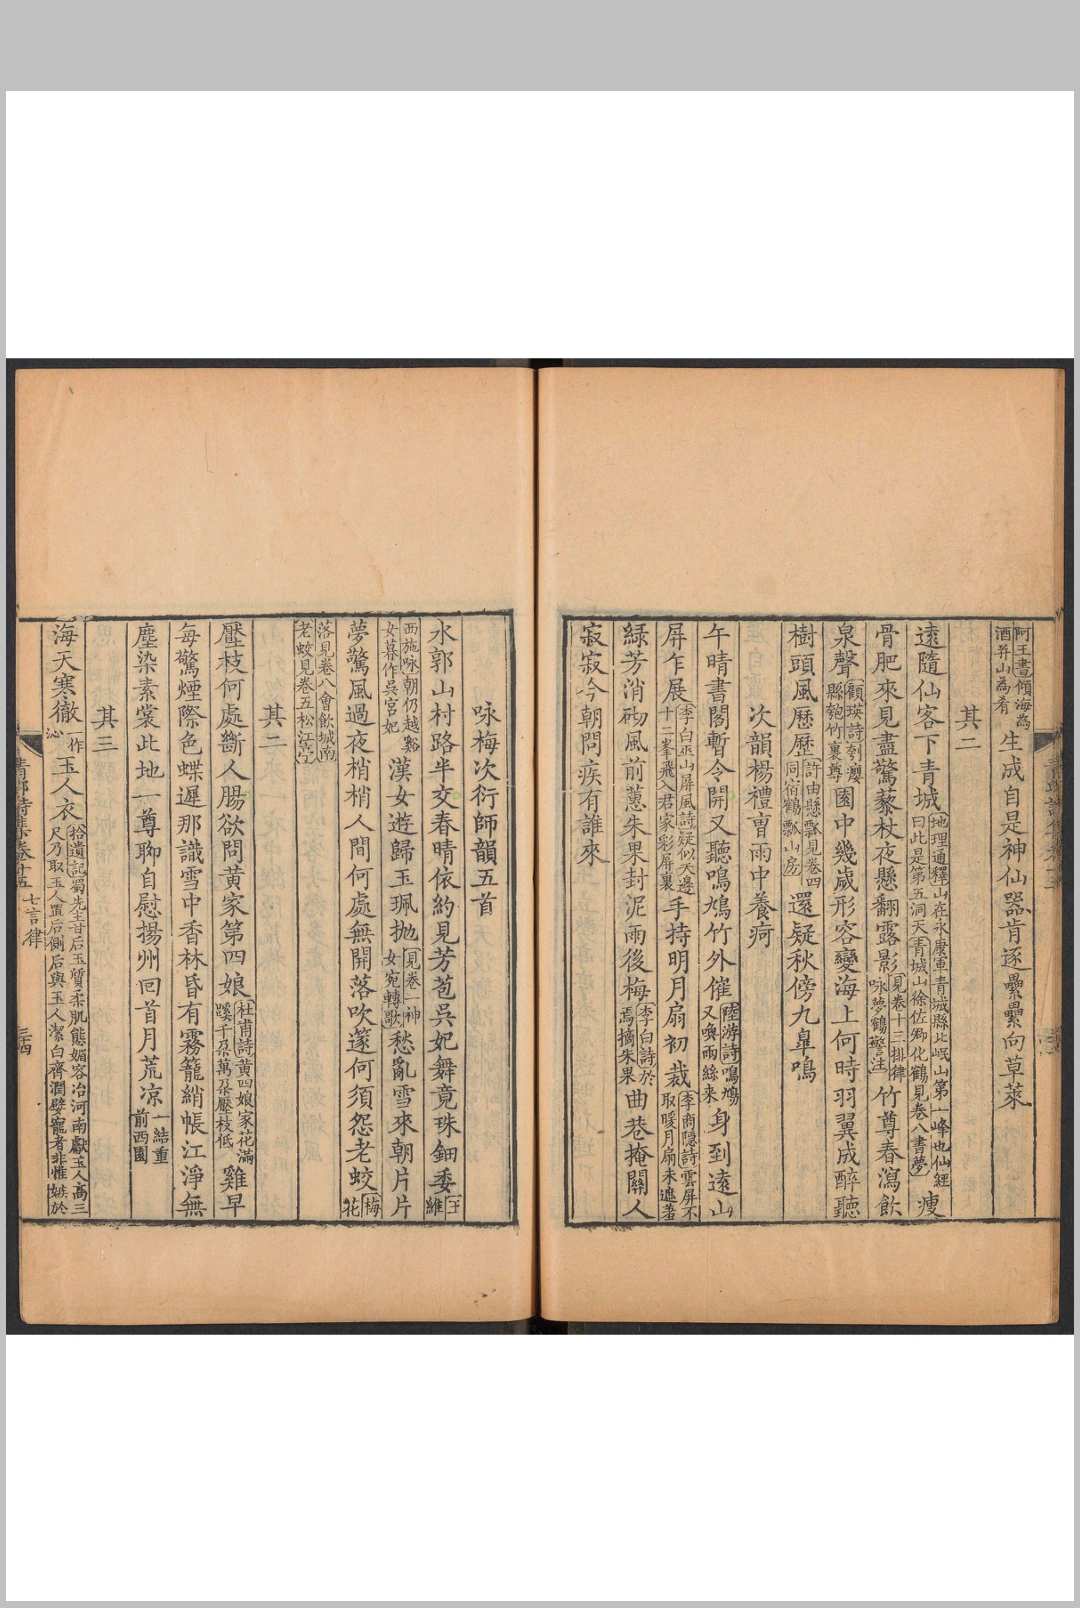 阿王晝傾海為酒并山為肴生成自是神仙器肯逐纍纍向草萊
其二
遠隨仙客下青城地理通釋山在永康軍青城縣北岷山第一峰也仙經曰此是第五洞天青城山徐佐卿化鶴見卷八書夢瘦
骨肥來見盡驚藜杖夜懸翻露影見卷十三排律咏夢鶴警注竹尊春瀉飲
泉聲顧瑛詩刳癭縣匏竹裏尊園中幾歲形容變海上何時羽翼成醉聽
樹頭風歷歷許由懸瓢見卷四同宿鶴瓢山房還疑秋傍九臯鳴
次韻楊禮曹雨中養疴
午晴書閣暫令開又聽鳴鳩竹外催陸游詩鳴鳩又喚雨絲來身到遠山
屏乍展李白巫山屏風詩疑似天邊十二峯飛入君家彩屏裏手持明月扇初裁李商隱詩雲屏不取暖月扇未遮羞
綠芳消砌風前蕙朱果封泥雨後梅李白詩於焉摘朱果曲巷掩關人
寂寂今朝問疾有誰來
咏梅次衍師韻五首
水郭山村路半交春晴依約見芳苞吳妃舞竟珠鈿委王維
西施咏朝仍越谿女暮作吳宮妃漢女遊歸玉珮拋見卷一神女宛轉歌愁亂雪來朝片片
夢驚風過夜梢梢人間何處無開落吹篴何須怨老蛟梅花
落見卷八會飲城南老蛟見卷五松江亭
其二
壓枝何處斷人腸欲問黃家第四娘杜甫詩黃四娘家花滿蹊千朶萬朶壓枝低雞早
每驚煙際色蝶遲那識雪中香林昏有霧籠綃帳江淨無
塵染素裳此地一尊聊自慰揚州回首月荒凉一結重前西園
其三
海天寒徹一作沁玉人衣拾遺記蜀先主甘后玉質柔肌態媚容冶河南獻玉人高三尺乃取玉人置后側后與玉人潔白齊潤嬖寵者非惟嫉於
青邱詩集卷十五 七言律 三十四